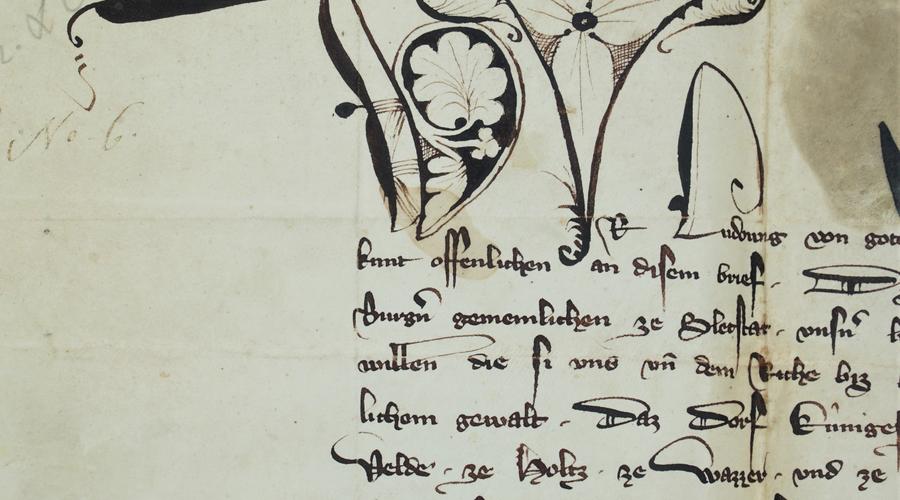 No. 6.
R Ludowig von gote
kunt offenlichen an disem brief.
Burgñ gemeinlichen ze Sletstat. vnsñ
willen die si vns vñ dem Riche biz
lichem gewalt. Daz Dorf Kúniges
Velde. ze Holtz. ze Wazzer. vnd ze